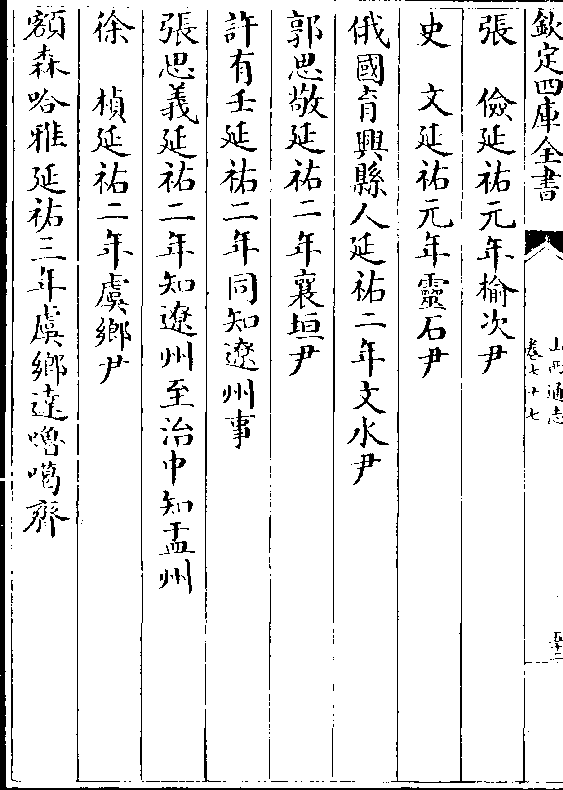 欽定四庫全書
山西通志
卷七十七
五十二
張　儉延祐元年榆次尹
史　文延祐元年靈石尹
俄國育興縣人延祐二年文水尹
郭思敬延祐二年襄垣尹
許有壬延祐二年同知遼州事
張思義延祐二年知遼州至治中知盂州
徐　楨延祐二年虞鄉尹
額森哈雅延祐三年虞鄉達嚕噶齊